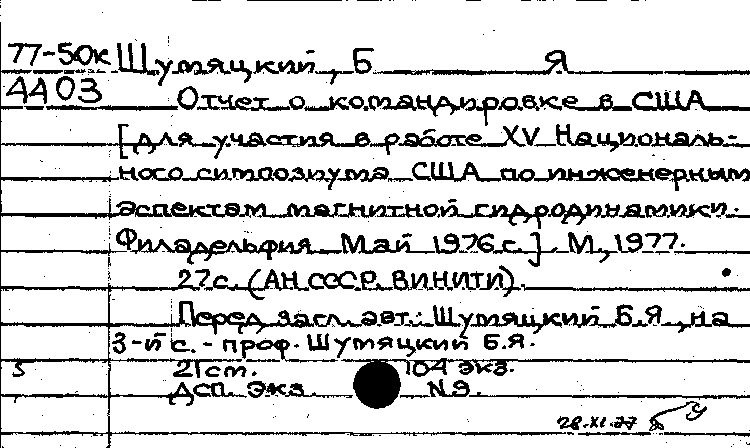 77-50к Шумяцкий, Б Я
4403 Отчет о командировке в США
[для участия в работе XV Националь-
ного симпозиума США по инженерным
аспектам магнитной гидродинамики.
Филадельфия. Май 1976 г.]. М., 1977.
27с. (АН СССР. ВИНИТИ).
Перед загл. авт.: Шумяцкий Б.Я., на
3-й с. - проф. Шумяцкий Б.Я.
5 21см. 104 экз.
Дсп. Экз. №9.
28.XI.77